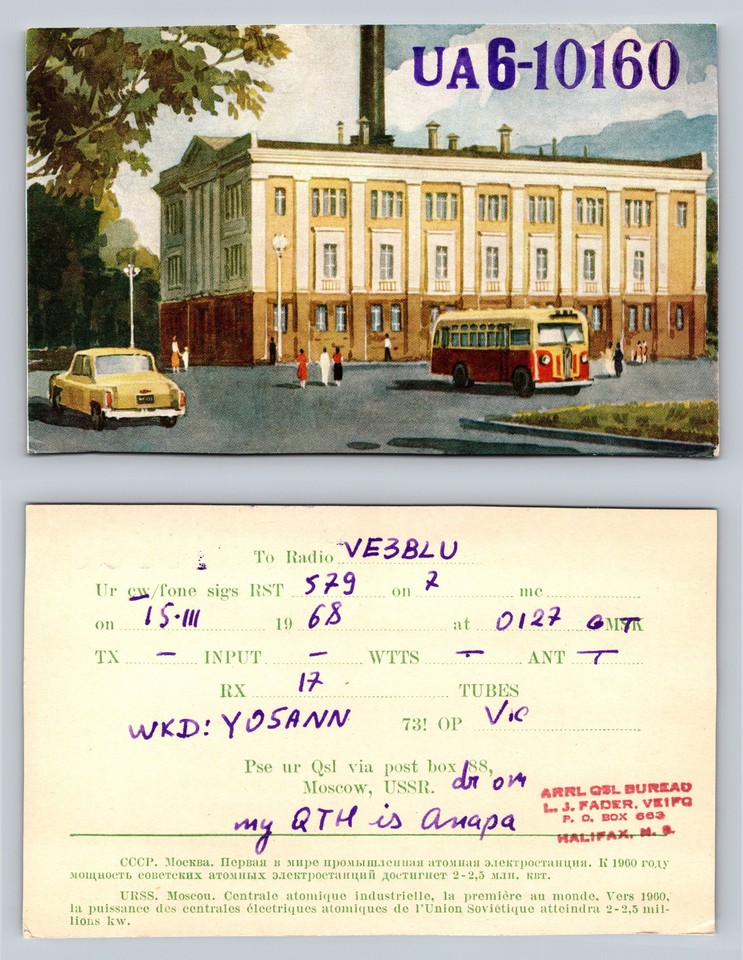 UA6-10160
To Radio VE3BLU
Ur cw/fone sigs RST 579 on 7 mc
on 15·III 1968 at 0127 GMT
TX — INPUT — WTTS — ANT —
RX 17 TUBES
WKD: YO5ANN 73! OP Vic
Pse ur Qsl via post box 88,
Moscow, USSR. dr om
my QTH is Anapa
ARRL QSL BUREAU
L. J. FADER, VE1FQ
P. O. BOX 663
HALIFAX, N. S.
СССР. Москва. Первая в мире промышленная атомная электростанция. К 1960 году
мощность советских атомных электростанций достигнет 2-2,5 млн. квт.
URSS. Moscou. Centrale atomique industrielle, la première au monde. Vers 1960,
la puissance des centrales électriques atomiques de l'Union Soviétique atteindra 2-2,5 mil-
lions kw.